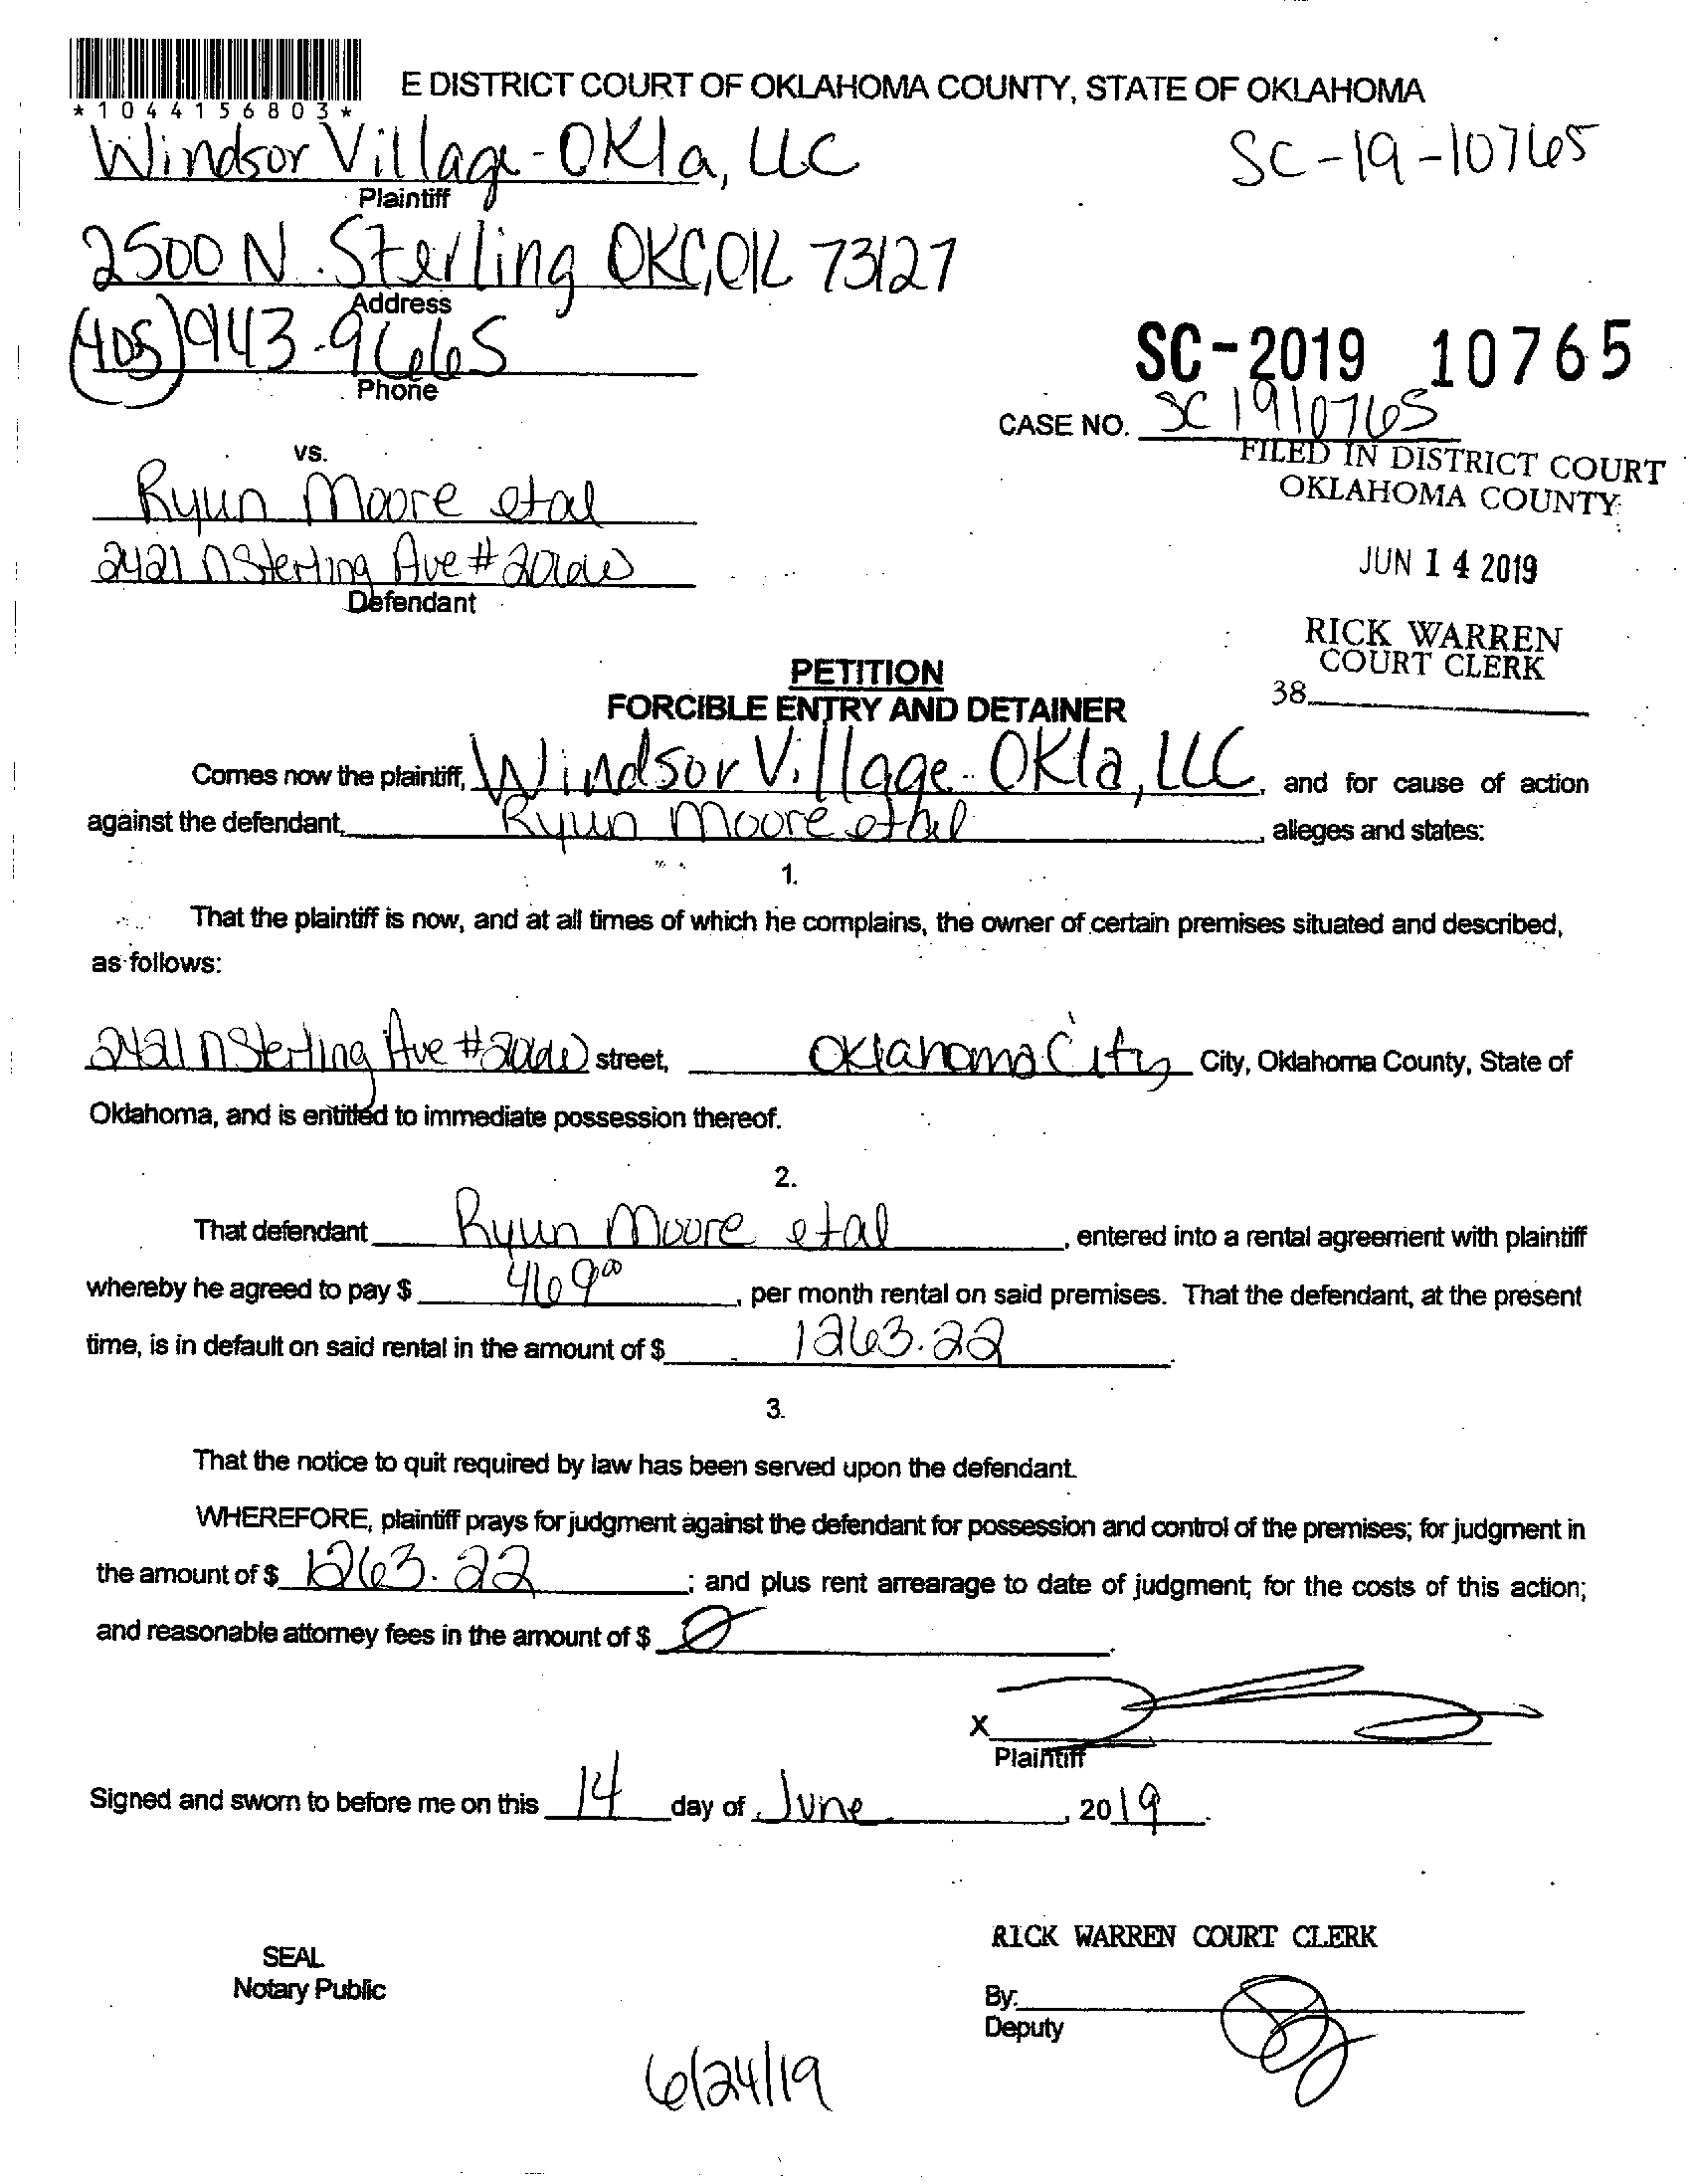 *1044156803*
E DISTRICT COURT OF OKLAHOMA COUNTY, STATE OF OKLAHOMA
Windsor Village-Okla, LLC
SC-19-10765
Plaintiff
2500 N. Sterling OKC, OK 73127
Address
(405)943-9665
Phone
SC-2019 10765
CASE NO. SC 1910765
FILED IN DISTRICT COURT
OKLAHOMA COUNTY
JUN 14 2019
RICK WARREN
COURT CLERK
38
vs.
Ryun Moore etal
2421 N Sterling Ave #
Defendant
PETITION
FORCIBLE ENTRY AND DETAINER
Comes now the plaintiff, Windsor Village-Okla, LLC, and for cause of action
against the defendant, Ryun Moore etal, alleges and states:
1.
That the plaintiff is now, and at all times of which he complains, the owner of certain premises situated and described,
as follows:
2421 N Sterling Ave # street, Oklahoma City City, Oklahoma County, State of
Oklahoma, and is entitled to immediate possession thereof.
2.
That defendant Ryun Moore etal, entered into a rental agreement with plaintiff
whereby he agreed to pay $ 469.00, per month rental on said premises. That the defendant, at the present
time, is in default on said rental in the amount of $ 1263.22.
3.
That the notice to quit required by law has been served upon the defendant.
WHEREFORE, plaintiff prays for judgment against the defendant for possession and control of the premises; for judgment in
the amount of $ 1263.22; and plus rent arrearage to date of judgment; for the costs of this action;
and reasonable attorney fees in the amount of $ 0.
X
Plaintiff
Signed and sworn to before me on this 14 day of June, 2019.
RICK WARREN COURT CLERK
SEAL
Notary Public
By:
Deputy
6/24/19